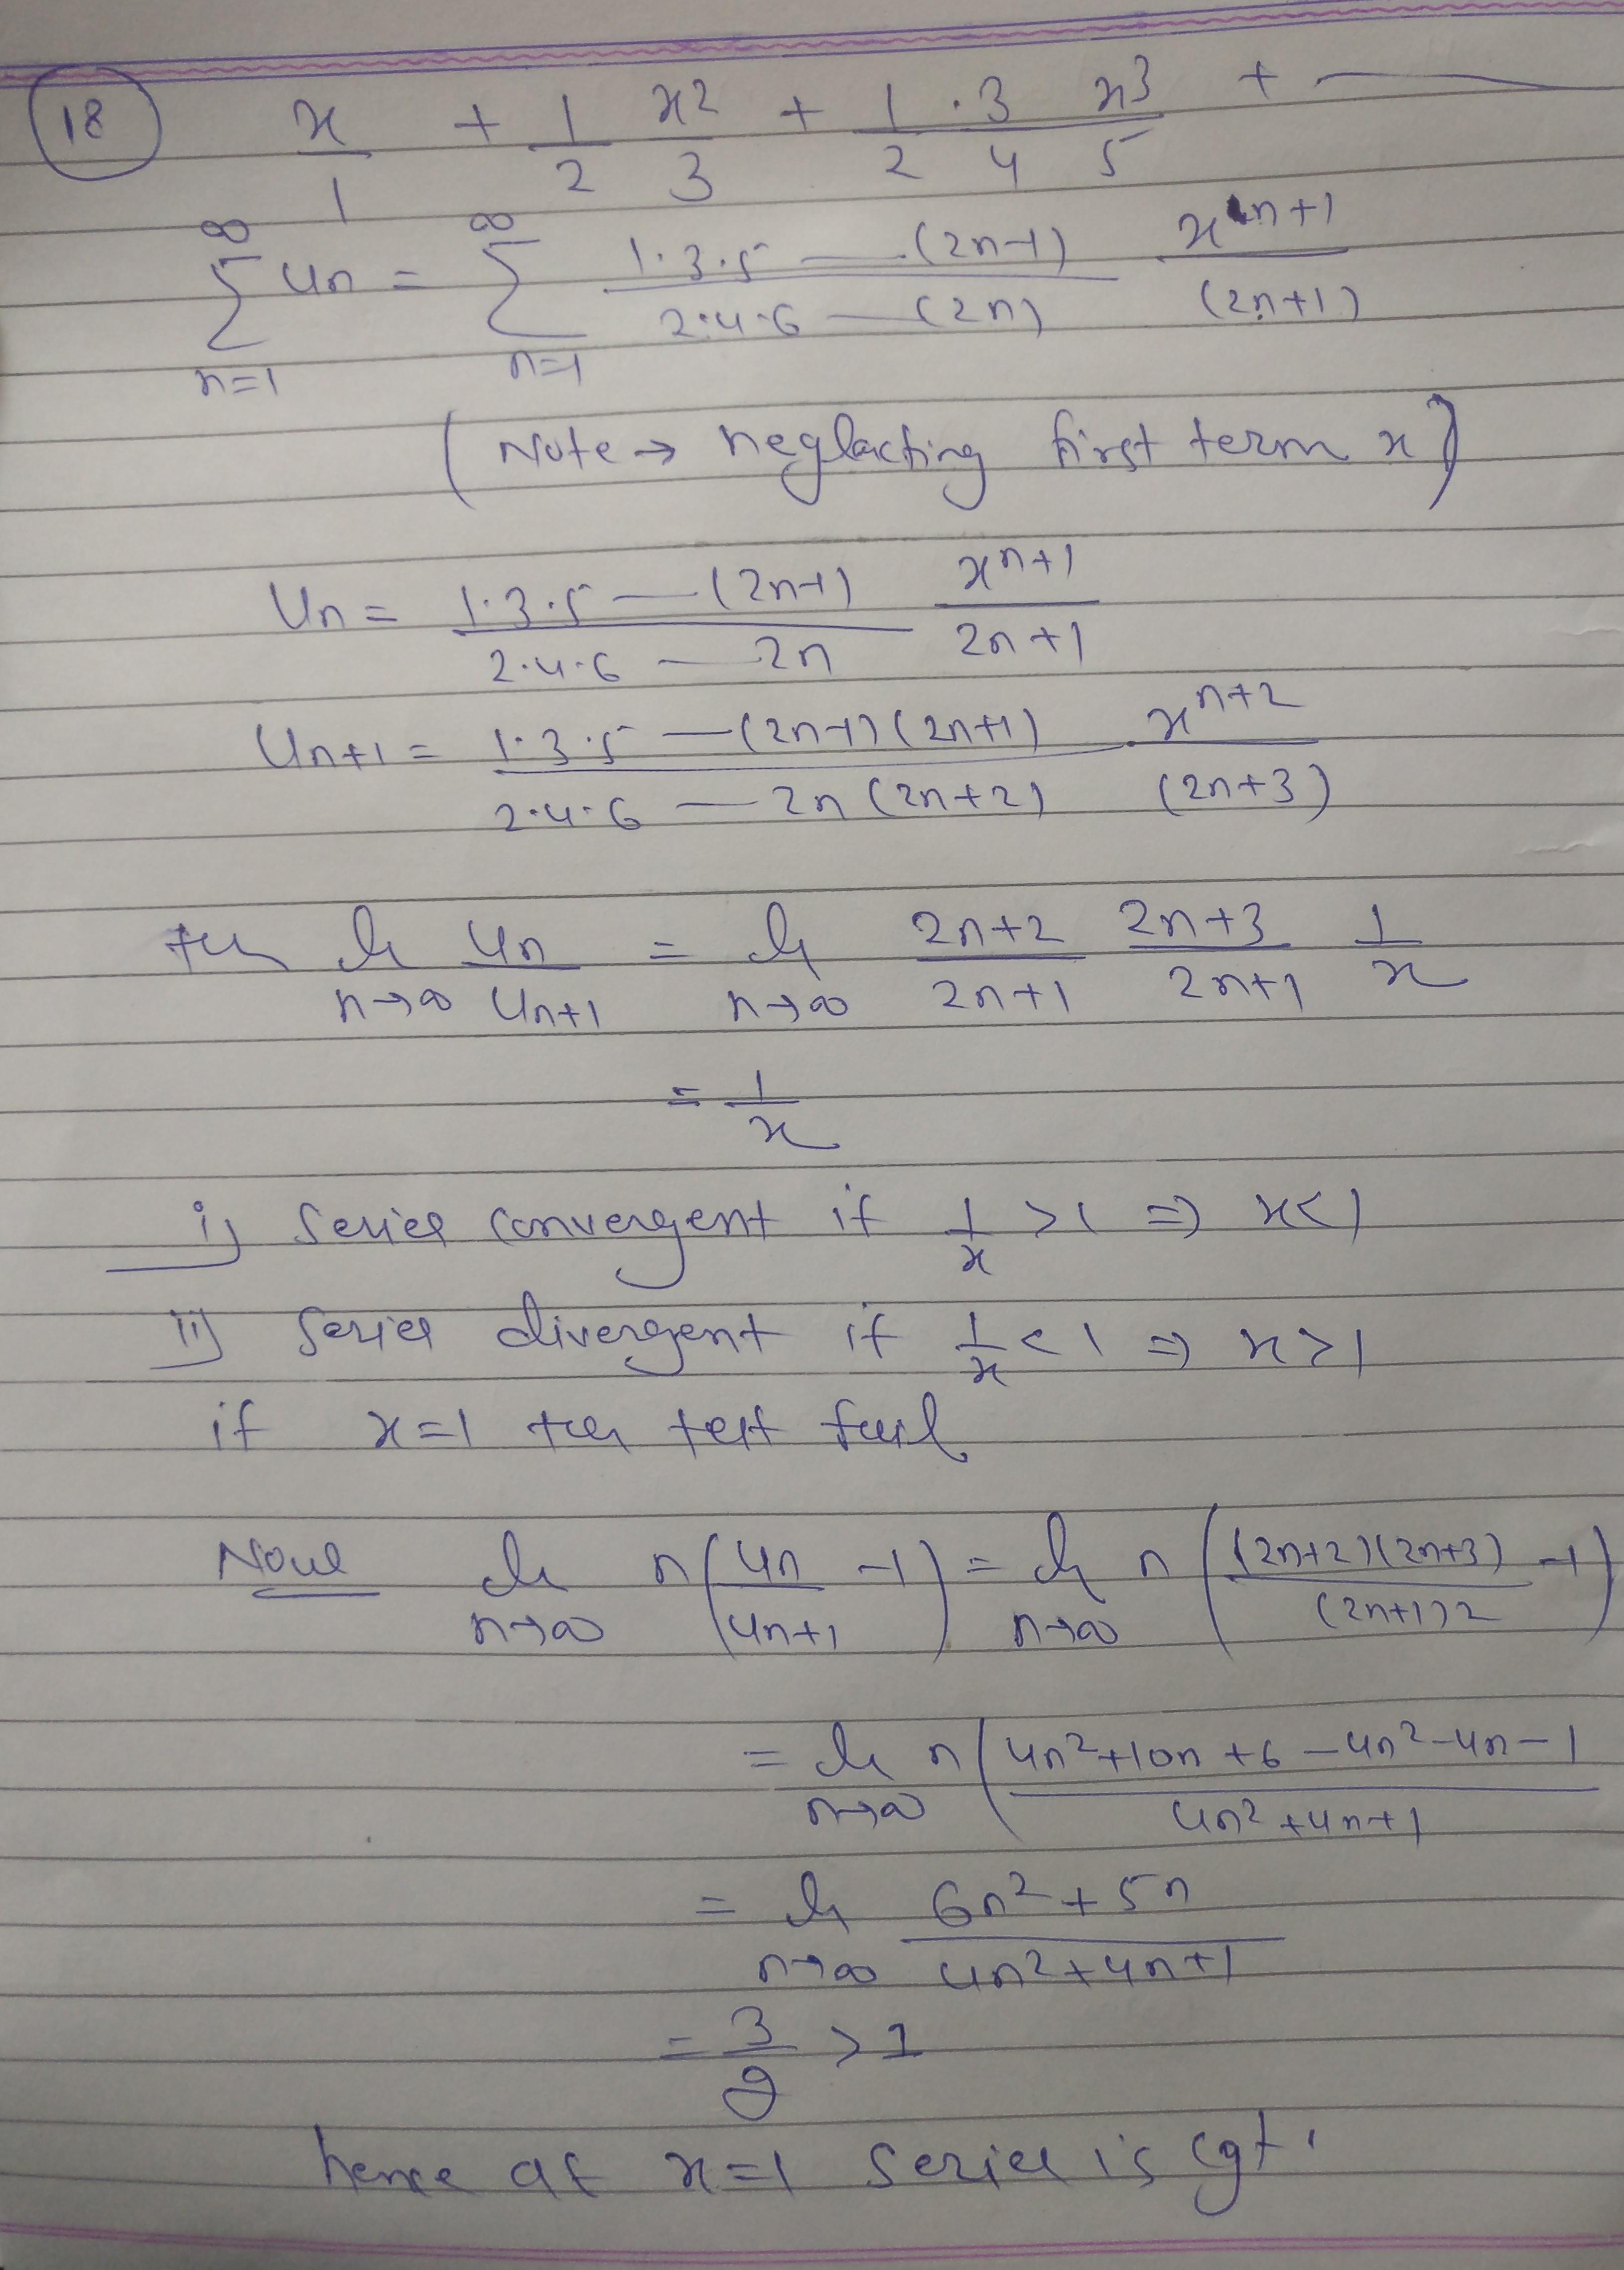 18 x/1 + 1/2 x²/3 + 1·3/2 4 x³/5 + ———
∞ ∑ n=1 Un = ∞ ∑ n=1 1·3·5 —— (2n-1) / 2·4·6 — (2n) x^n+1 / (2n+1)
(Note → neglecting first term x)
Un = 1·3·5 — (2n-1) / 2·4·6 — 2n x^n+1 / 2n+1
Un+1 = 1·3·5 — (2n-1)(2n+1) / 2·4·6 — 2n(2n+2) · x^n+2 / (2n+3)
lt n→∞ Un/Un+1 = lt n→∞ 2n+2/2n+1 2n+3/2n+1 1/x
= 1/x
i) Series convergent if 1/x >1 ⇒ x<1
ii) Series divergent if 1/x < 1 ⇒ x>1
if x=1 test fail
Now lt n→∞ n(Un/Un+1 -1) = lt n→∞ n((2n+2)(2n+3)/(2n+1)2 -1)
= lt n→∞ n(4n²+10n+6-4n²-4n-1 / 4n²+4n+1
= lt n→∞ 6n²+5n / 4n²+4n+1
= 3/2 > 1
hence at x=1 Series is cgt.